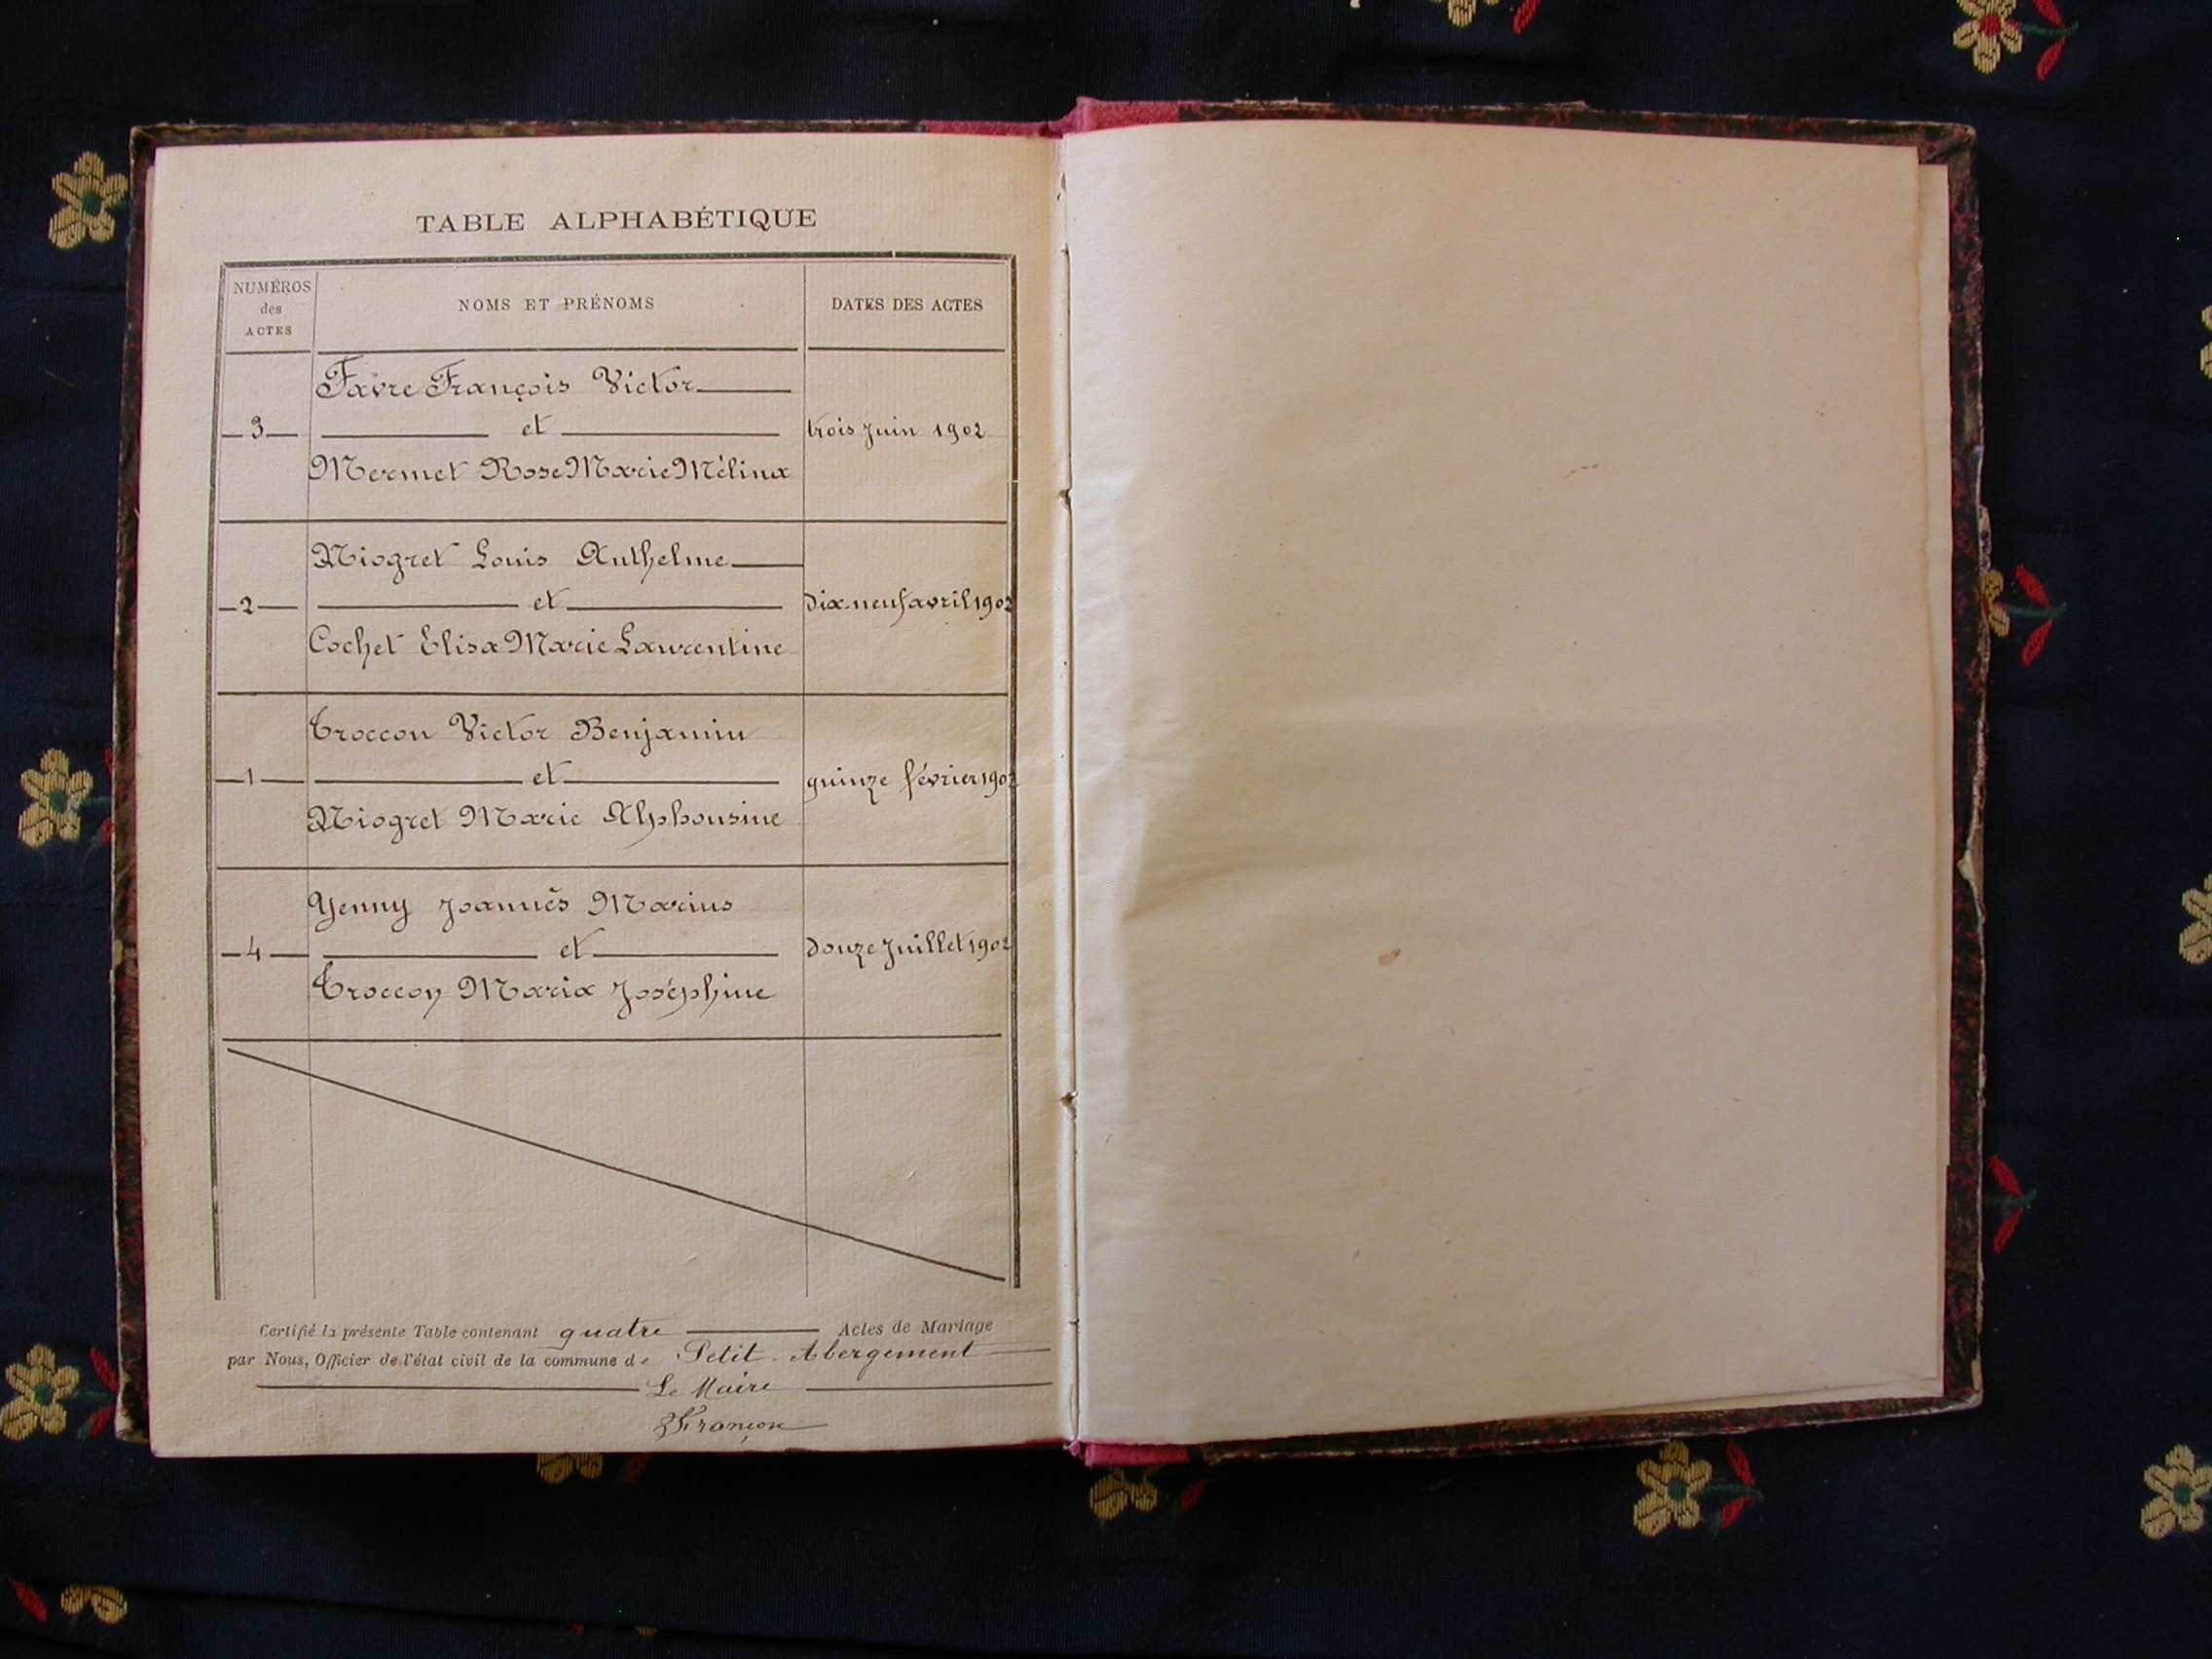 TABLE ALPHABÉTIQUE
NUMÉROS
des
ACTES
NOMS ET PRÉNOMS
DATES DES ACTES
Favre François Victor
3 et trois Juin 1902
Mermet Rose Marie Mélina
Niogret Louis Anthelme
2 et Dix-neuf avril 1902
Cochet Elisa Marie Laurentine
Troccon Victor Benjamin
1 et quinze février 1902
Niogret Marie Alphonsine
Yenny Joannès Marius
4 et Douze Juillet 1902
Troccon Maria Joséphine
Certifié la présente Table contenant quatre Actes de Mariage
par Nous, Officier de l'état civil de la commune de Petit Abergement
Le Maire